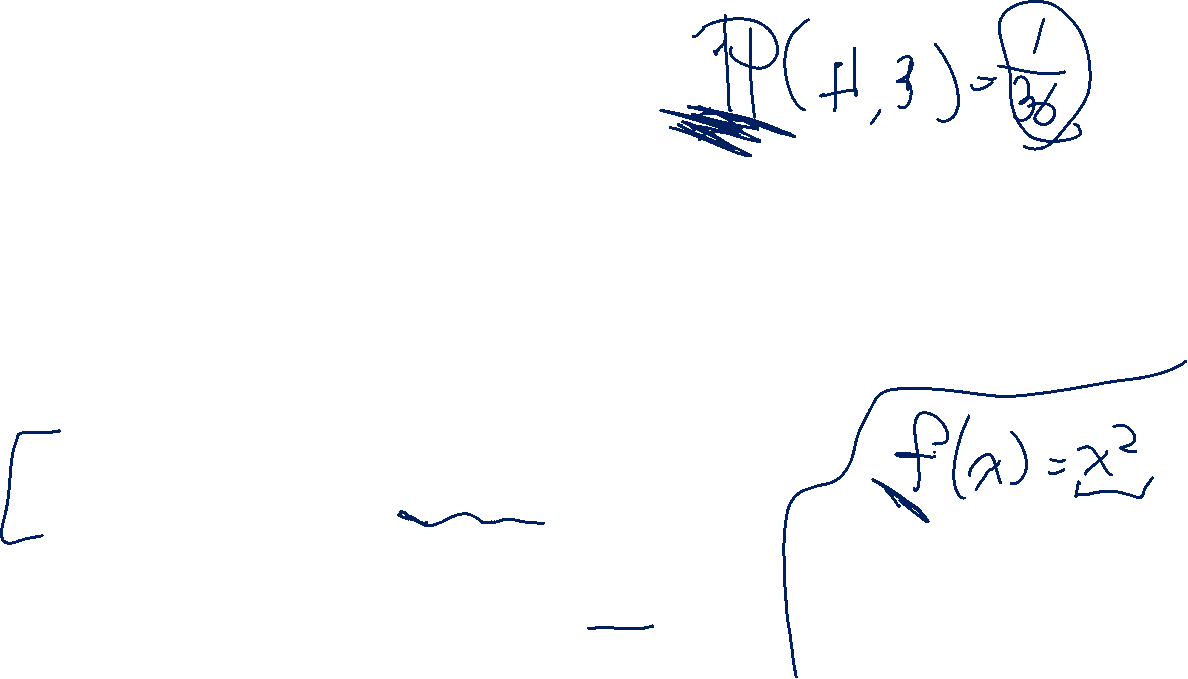 ℙ(H,3)=1/36
f(x)=x²